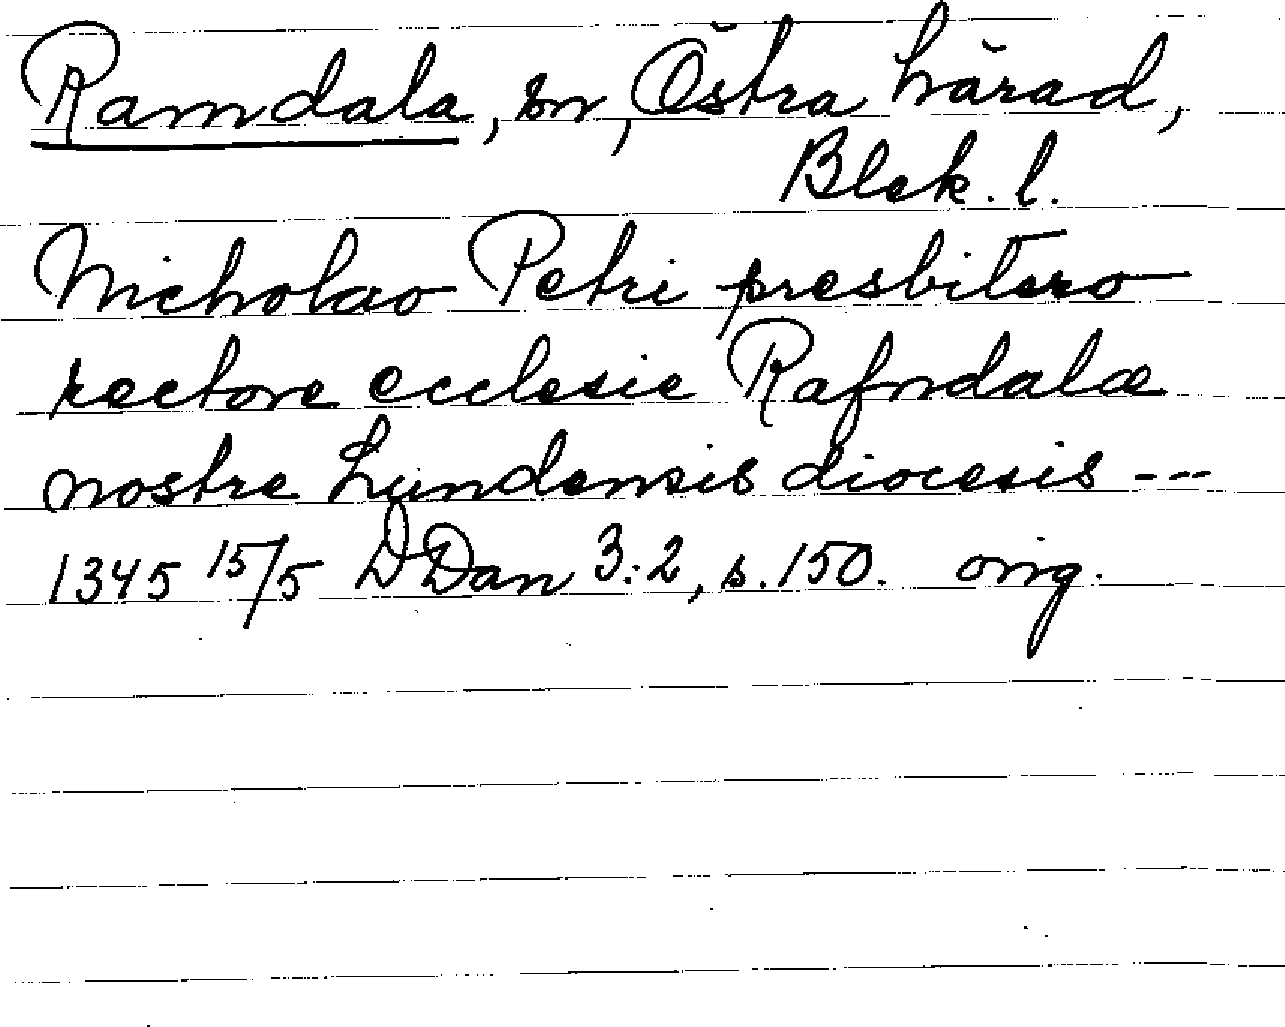 Ramdala, sn, Östra härad,
Blek. l.
Nicholao Petri presbitero
rectore ecclesie Rafndalæ
nostre Lundensis diocesis ---
1345 15/5 DDan 3:2, s. 150. orig.